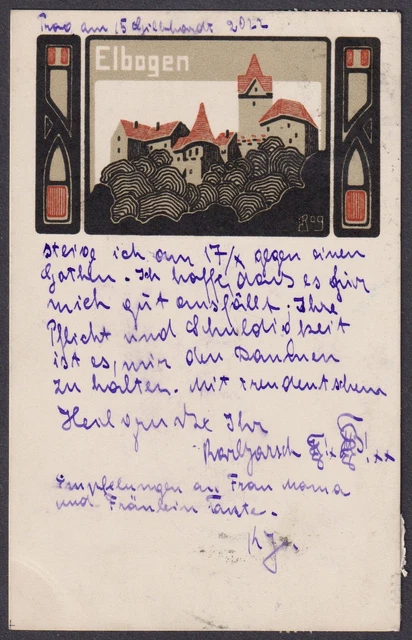 Prag am 15 Gilbhardt 2022
Elbogen
Rog
steige ich am 17/x gegen einen
Gothen. Ich hoffe dass es für
mich gut ausfällt; Ihre
Pflicht und Schuldigkeit
ist es, mir den Daumen
zu halten. Mit treudeutschem
Heilgruße Ihr
Karl
Empfelungen an Frau Mama
und Fräulein Tante.